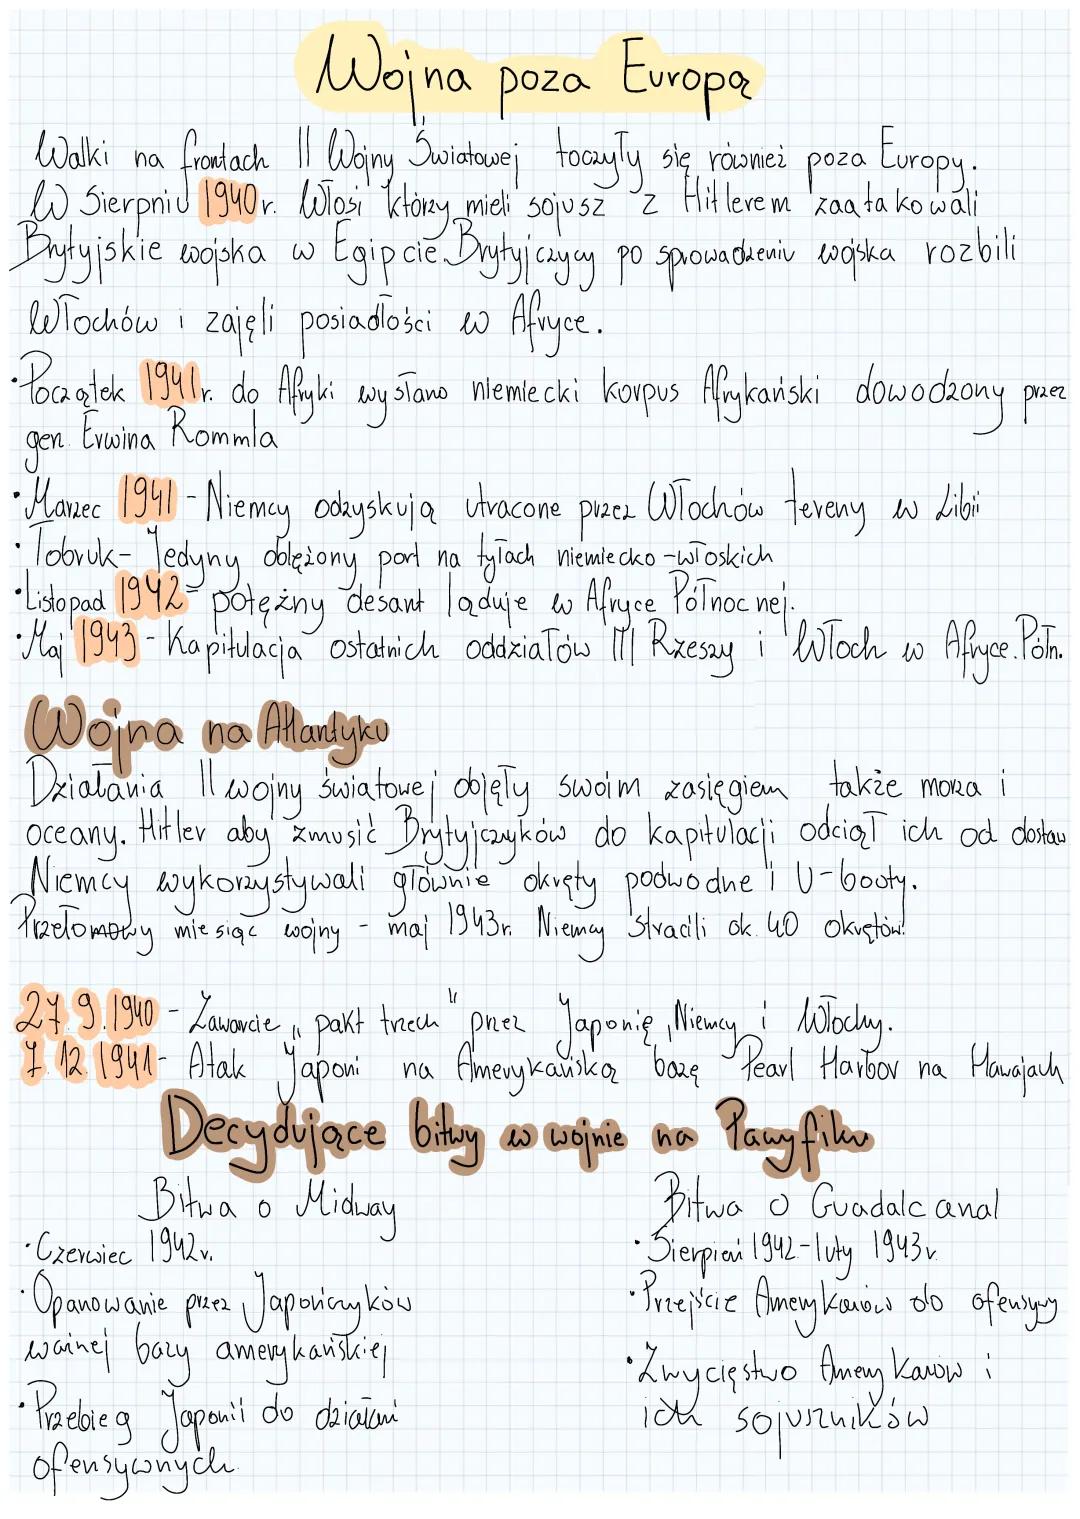 Wojna poza Europą
Walki na frontach II Wojny Światowej toczyły się również poza Europy.
W Sierpniu 1940r. Włosi którzy mieli sojusz z Hitlerem zaatakowali
Brytyjskie wojska w Egipcie. Brytyjczycy po sprowadzeniu wojska rozbili
Włochów i zajęli posiadłości w Afryce.
•Początek 1941r. do Afryki wysłano niemiecki korpus Afrykański dowodzony przez
gen. Erwina Rommla
•Marzec 1941 - Niemcy odzyskują utracone przez Włochów tereny w Libii
•Tobruk - Jedyny oblężony port na tyłach niemiecko-włoskich
•Listopad 1942 - potężny desant ląduje w Afryce Północnej.
•Maj 1943 - Kapitulacja ostatnich oddziałów III Rzeszy i Włoch w Afryce.Półn.
Wojna na Atlantyku
Działania II wojny światowej objęły swoim zasięgiem także morza i
oceany. Hitler aby zmusić Brytyjczyków do kapitulacji odciął ich od dostaw
Niemcy wykorzystywali głównie okręty podwodne i U-booty.
Przełomowy miesiąc wojny - maj 1943r. Niemcy stracili ok. 40 okrętów!
27.9.1940 - Zawarcie „pakt trzech" przez Japonię, Niemcy i Włochy.
7.12.1941 - Atak Japoni na Amerykańską bazę Pearl Harbor na Hawajach
Decydujące bitwy w wojnie na Pacyfiku
Bitwa o Midway
•Czerwiec 1942r.
•Opanowanie przez Japończyków
ważnej bazy amerykańskiej
•Przebieg Japonii do działań
ofensywnych
Bitwa o Guadalcanal
•Sierpień 1942-luty 1943r.
•Przejście Amerykanów do ofensywy
•Zwycięstwo Amerykanów i
ich sojuszników